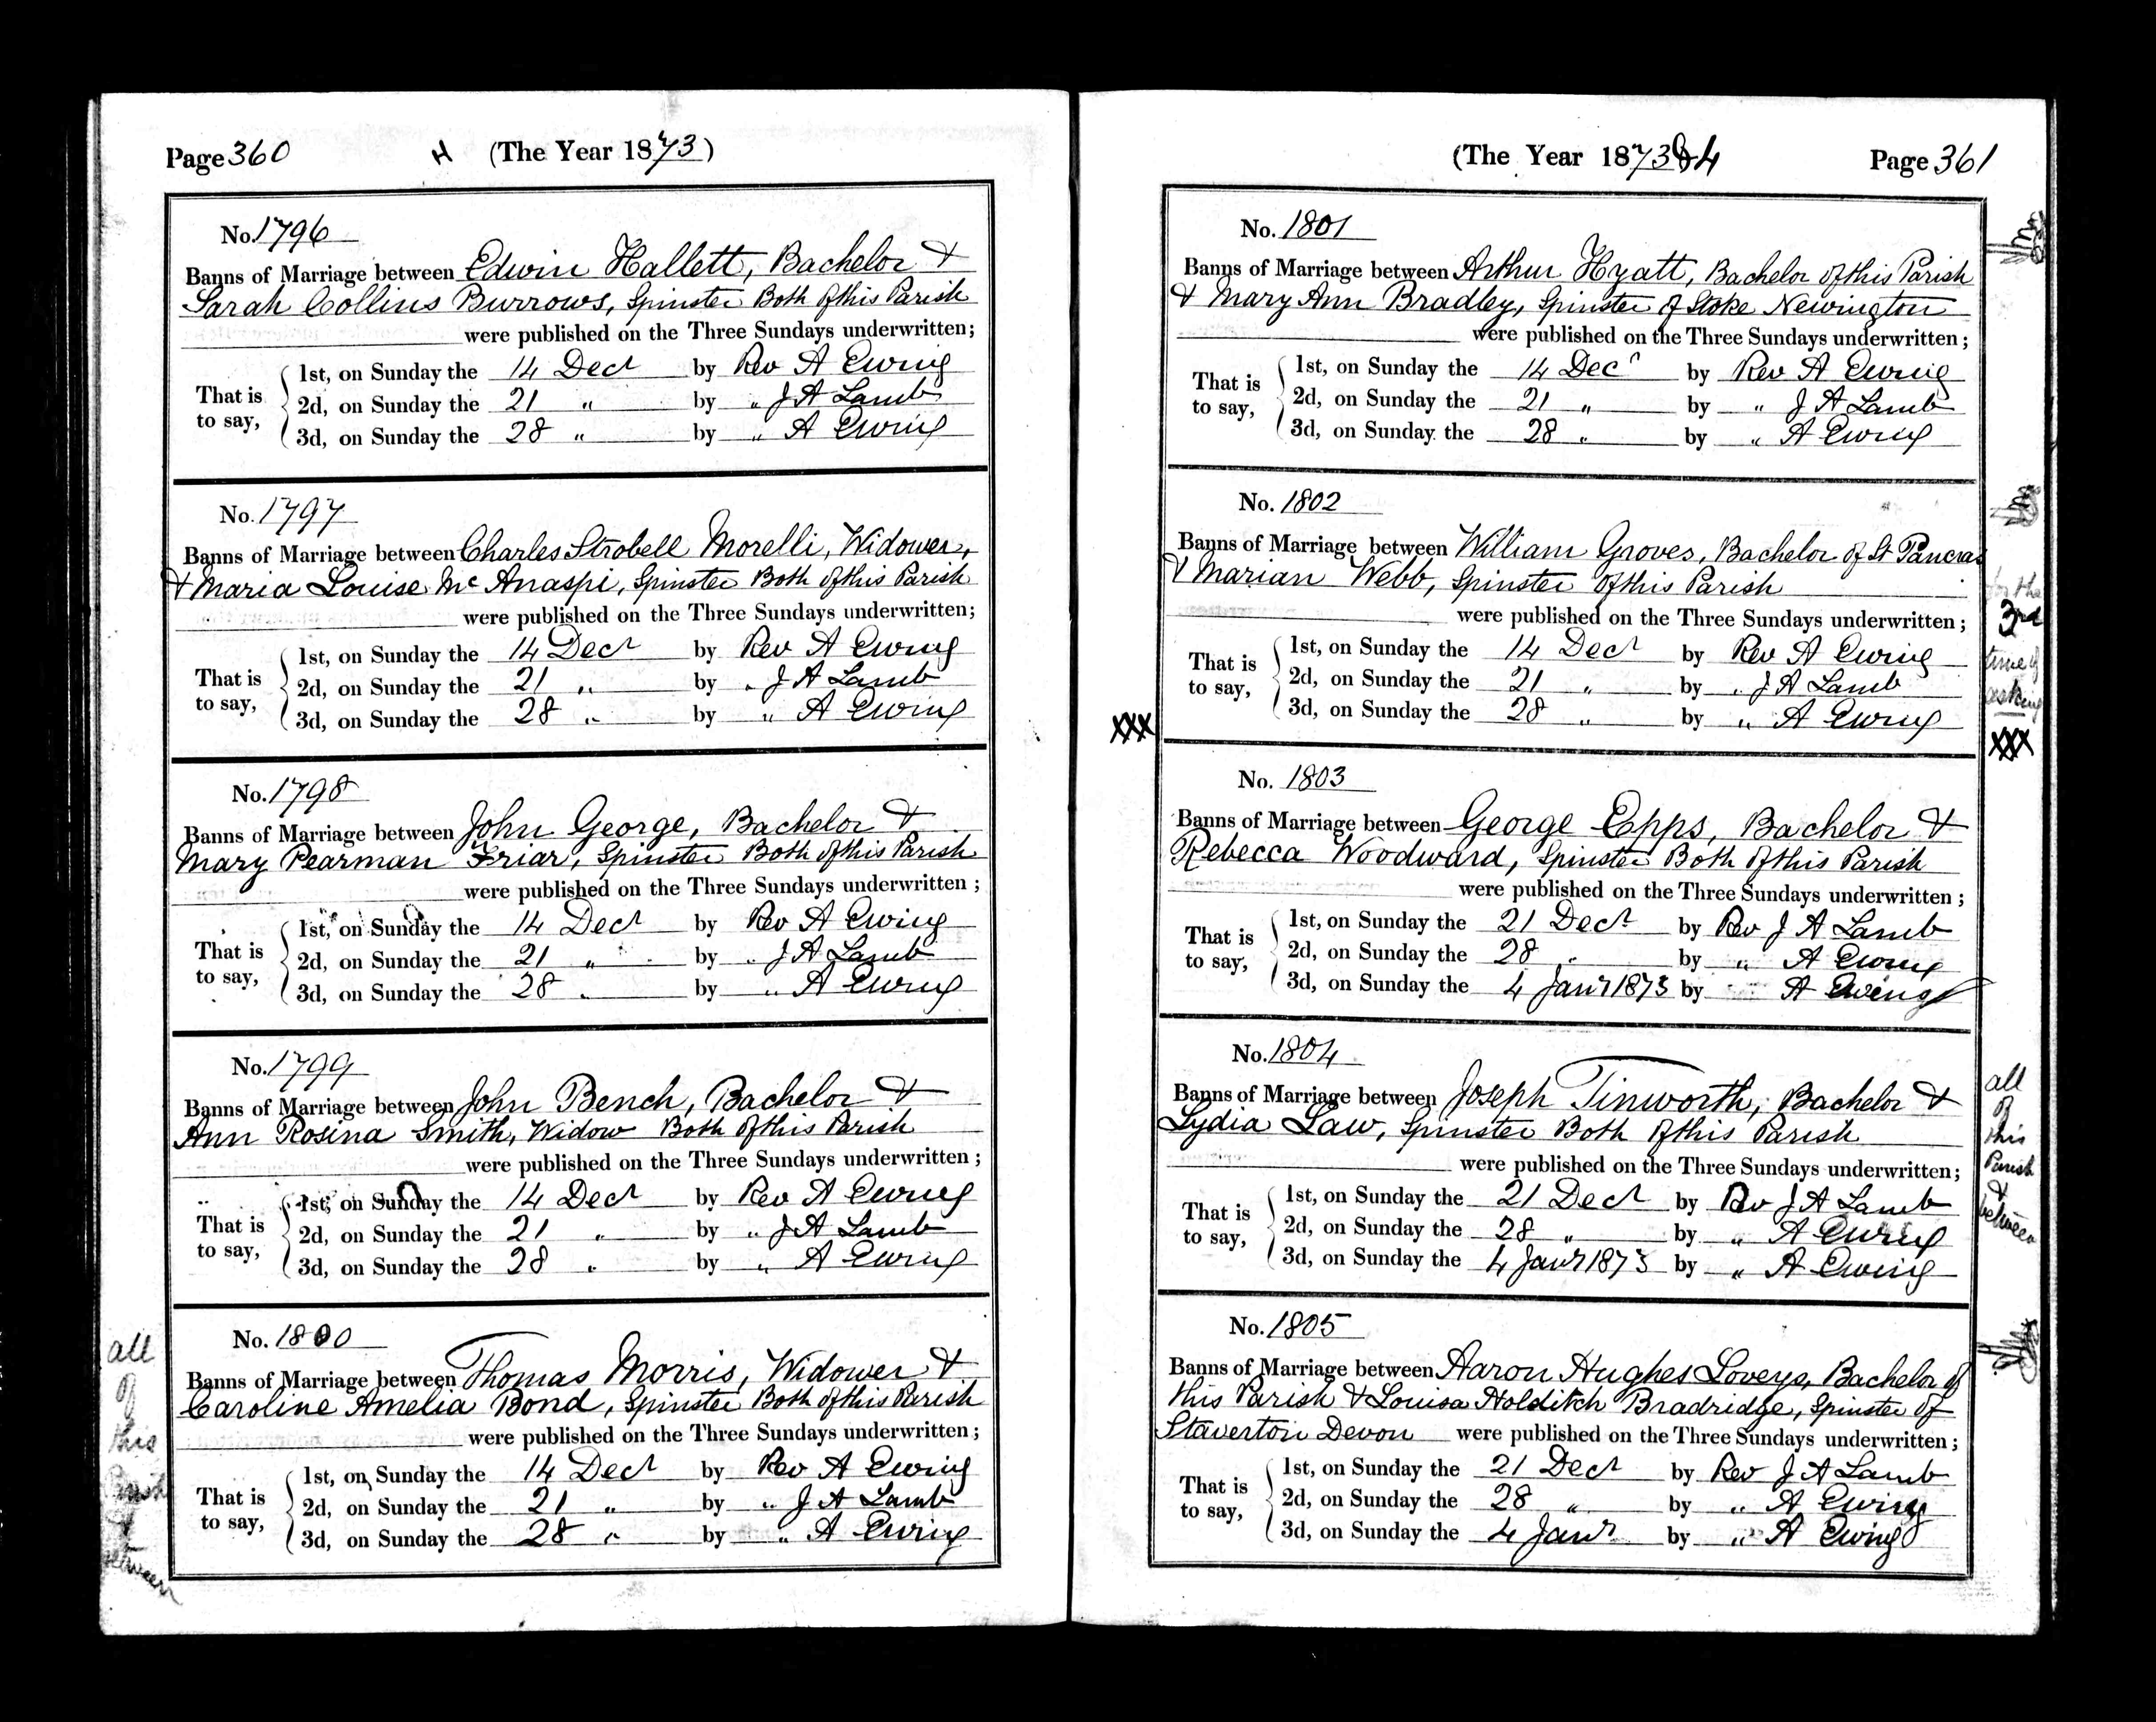 Page 360 H (The Year 1873)
No. 1796
Banns of Marriage between Edwin Hallett, Bachelor &
Sarah Collins Burrows, Spinster Both of this Parish
were published on the Three Sundays underwritten;
That is to say,
1st, on Sunday the 14 Decr by Rev A Ewing
2d, on Sunday the 21 " by " J A Lamb
3d, on Sunday the 28 " by " A Ewing
No. 1797
Banns of Marriage between Charles Strobell Morelli, Widower,
& Maria Louise Mc Anaspi, Spinster Both of this Parish
were published on the Three Sundays underwritten;
That is to say,
1st, on Sunday the 14 Decr by Rev A Ewing
2d, on Sunday the 21 " by " J A Lamb
3d, on Sunday the 28 " by " A Ewing
No. 1798
Banns of Marriage between John George, Bachelor &
Mary Pearman Friar, Spinster Both of this Parish
were published on the Three Sundays underwritten;
That is to say,
1st, on Sunday the 14 Decr by Rev A Ewing
2d, on Sunday the 21 " by " J A Lamb
3d, on Sunday the 28 " by " A Ewing
No. 1799
Banns of Marriage between John Bench, Bachelor &
Ann Rosina Smith, Widow Both of this Parish
were published on the Three Sundays underwritten;
That is to say,
1st, on Sunday the 14 Decr by Rev A Ewing
2d, on Sunday the 21 " by " J A Lamb
3d, on Sunday the 28 " by " A Ewing
No. 1800
Banns of Marriage between Thomas Morris, Widower &
Caroline Amelia Bond, Spinster Both of this Parish
were published on the Three Sundays underwritten;
That is to say,
1st, on Sunday the 14 Decr by Rev A Ewing
2d, on Sunday the 21 " by " J A Lamb
3d, on Sunday the 28 " by " A Ewing
all
of
this
Parish
&
between
(The Year 1873 & 4 Page 361
No. 1801
Banns of Marriage between Arthur Hyatt, Bachelor of this Parish
& Mary Ann Bradley, Spinster of Stoke Newington
were published on the Three Sundays underwritten;
That is to say,
1st, on Sunday the 14 Decr by Rev A Ewing
2d, on Sunday the 21 " by " J A Lamb
3d, on Sunday the 28 " by " A Ewing
No. 1802
Banns of Marriage between William Groves, Bachelor of St Pancras
& Marian Webb, Spinster of this Parish
were published on the Three Sundays underwritten;
That is to say,
1st, on Sunday the 14 Decr by Rev A Ewing
2d, on Sunday the 21 " by " J A Lamb
3d, on Sunday the 28 " by " A Ewing
for the
3rd
time of
asking
XXX
XXX
No. 1803
Banns of Marriage between George Epps, Bachelor &
Rebecca Woodward, Spinster Both of this Parish
were published on the Three Sundays underwritten;
That is to say,
1st, on Sunday the 21 Decr by Rev J A Lamb
2d, on Sunday the 28 " by " A Ewing
3d, on Sunday the 4 Janr 1873 by A Ewing
No. 1804
Banns of Marriage between Joseph Tinworth, Bachelor &
Lydia Law, Spinster Both of this Parish
were published on the Three Sundays underwritten;
That is to say,
1st, on Sunday the 21 Decr by Rev J A Lamb
2d, on Sunday the 28 " by " A Ewing
3d, on Sunday the 4 Janr 1873 by " A Ewing
all
of
this
Parish
&
between
No. 1805
Banns of Marriage between Aaron Hughes Loveys, Bachelor of
this Parish & Louisa Holditch Bradridge, Spinster of
Staverton Devon were published on the Three Sundays underwritten;
That is to say,
1st, on Sunday the 21 Decr by Rev J A Lamb
2d, on Sunday the 28 " by " A Ewing
3d, on Sunday the 4 Janr by " A Ewing